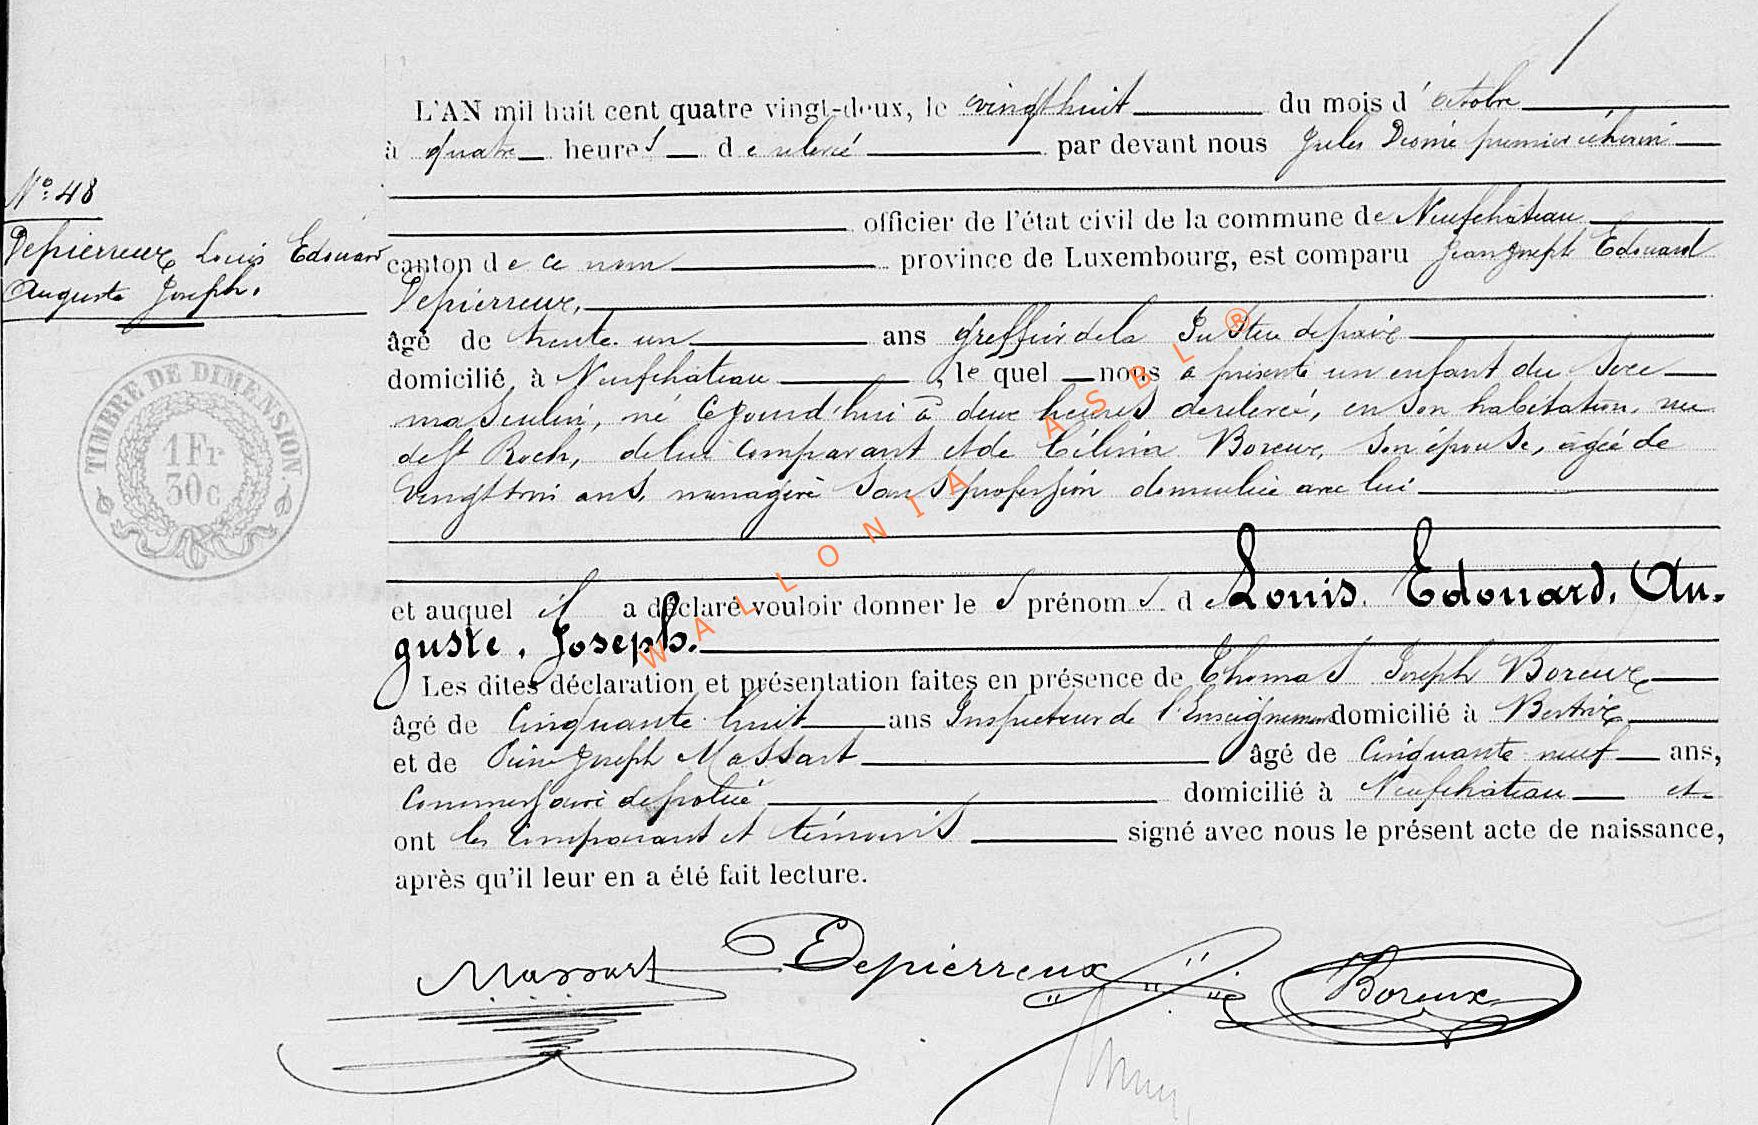 L'AN mil huit cent quatre vingt-deux, le vingt huit du mois d'octobre
à quatre heures de relevé par devant nous Jules premier échevin
N° 48
officier de l'état civil de la commune de Neufchâteau
Depierreux Louis Edouard
Auguste Joseph.
canton de ce nom province de Luxembourg, est comparu Jean Joseph Edouard
Depierreux,
âgé de trente un ans greffier de la Justice de paix
domicilié à Neufchâteau, le quel nous a présenté un enfant du sexe
masculin, né ce jourd'hui à deux heures de relevé, en son habitation, rue
de St Roch, de lui comparant et de Célina Boreux, son épouse, agée de
vingt trois ans, menagère sans profession domiciliée avec lui
et auquel il a déclaré vouloir donner les prénoms de Louis. Edouard. Au-
guste. Joseph.
Les dites déclaration et présentation faites en présence de Thomas Joseph Boreux
âgé de Cinquante huit ans Inspecteur de l'Enseignement domicilié à Bertrix
et de Joseph Massart âgé de Cinquante neuf ans,
Commissaire de police domicilié à Neufchâteau et
ont les comparant et témoins signé avec nous le présent acte de naissance,
après qu'il leur en a été fait lecture.
Massart Depierreux Boreux
TIMBRE DE DIMENSION
1 Fr
30 c
WALLONIA ASBL ®